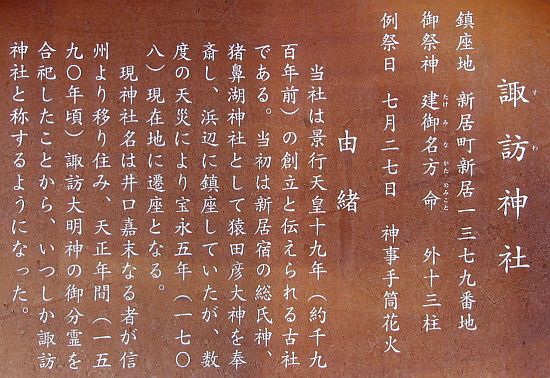 諏訪神社
鎮座地 新居町新居一三七九番地
御祭神 建御名方命 外十三柱
例祭日 七月二七日 神事手筒花火
由緒
当社は景行天皇十九年（約千九
百年前）の創立と伝えられる古社
である。当初は新居宿の総氏神、
猪鼻湖神社として猿田彦大神を奉
斎し、浜辺に鎮座していたが、数
度の天災により宝永五年（一七〇
八）現在地に遷座となる。
現神社名は井口嘉末なる者が信
州より移り住み、天正年間（一五
九〇年頃）諏訪大明神の御分霊を
合祀したことから、いつしか諏訪
神社と称するようになった。